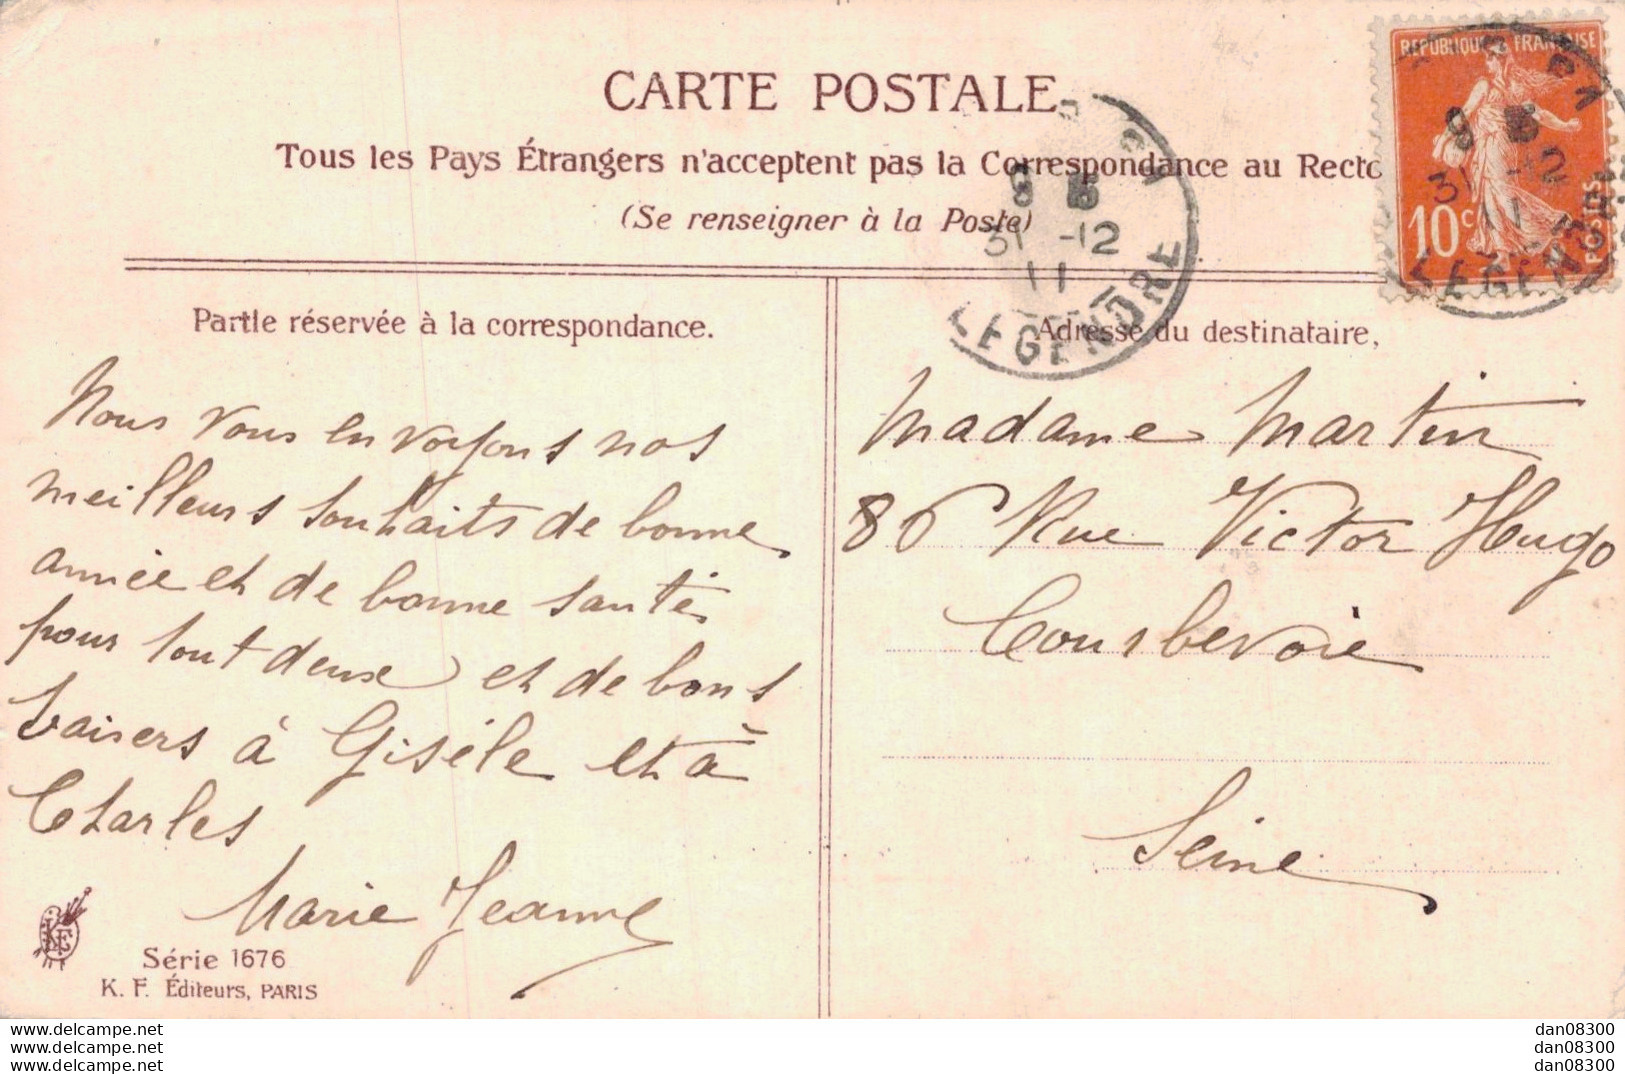 CARTE POSTALE
Tous les Pays Étrangers n'acceptent pas la Correspondance au Recto
(Se renseigner à la Poste)
REPUBLIQUE FRANÇAISE
10c
POSTES
31 -12
11
LEGENDRE
31 -12
11
LEGENDRE
Partie réservée à la correspondance.
Nous vous envoyons nos
meilleurs souhaits de bonne
année et de bonne santé
pour tout deux et de bons
baisers à Gisèle et à
Charles
Marie Jeanne
Adresse du destinataire,
Madame Martin
86 Rue Victor Hugo
Courbevoie
Seine
KF
Série 1676
K. F. Éditeurs, PARIS
www.delcampe.net
www.delcampe.net
www.delcampe.net
dan08300
dan08300
dan08300